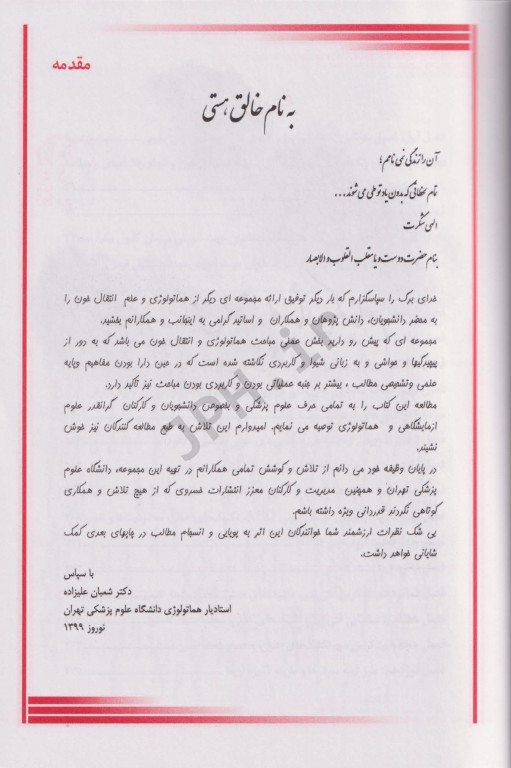 مقدمه
به نام خالق هستی
آن را زندگی نمی نامم؛
تمام لحظاتی که بدون یاد تو طی می شوند...
الهی شکرت
بنام حضرت دوست و یا مقلب القلوب و الابصار
خدای بزرگ را سپاسگزارم که بار دیگر توفیق ارائه مجموعه ای دیگر از هماتولوژی و علم انتقال خون را
به محضر دانشجویان، دانش پژوهان و همکاران و اساتید گرامی به اینجانب و همکارانم بخشید.
مجموعه ای که پیش رو دارید بخش عملی مباحث هماتولوژی و انتقال خون می باشد که به دور از
پیچیدگیها و حواشی و به زبانی شیوا و کاربردی نگاشته شده است که در عین دارا بودن مفاهیم وپایه
علمی وتشخیصی مطالب ، بیشتر بر جنبه عملیاتی بودن و کاربردی بودن مباحث نیز تأکید دارد.
مطالعه این کتاب را به تمامی حرف علوم پزشکی و بخصوص دانشجویان و کارکنان گرانقدر علوم
آزمایشگاهی و هماتولوژی توصیه می نمایم. امیدوارم این تلاش به طبع مطالعه کنندگان نیز خوش
نشیند.
در پایان وظیفه خود می دانم از تلاش و کوشش تمامی همکارانم در تهیه این مجموعه، دانشگاه علوم
پزشکی تهران و همچنین مدیریت و کارکنان معزز انتشارات خسروی که از هیچ تلاش و همکاری
کوتاهی نکردند قدردانی ویژه داشته باشم.
بی شک نظرات ارزشمند شما خوانندگان این اثر به پویایی و انسجام مطالب در چاپهای بعدی کمک
شایانی خواهد داشت.
با سپاس
دکتر شعبان علیزاده
استادیار هماتولوژی دانشگاه علوم پزشکی تهران
نوروز ۱۳۹۹
JPH.ir